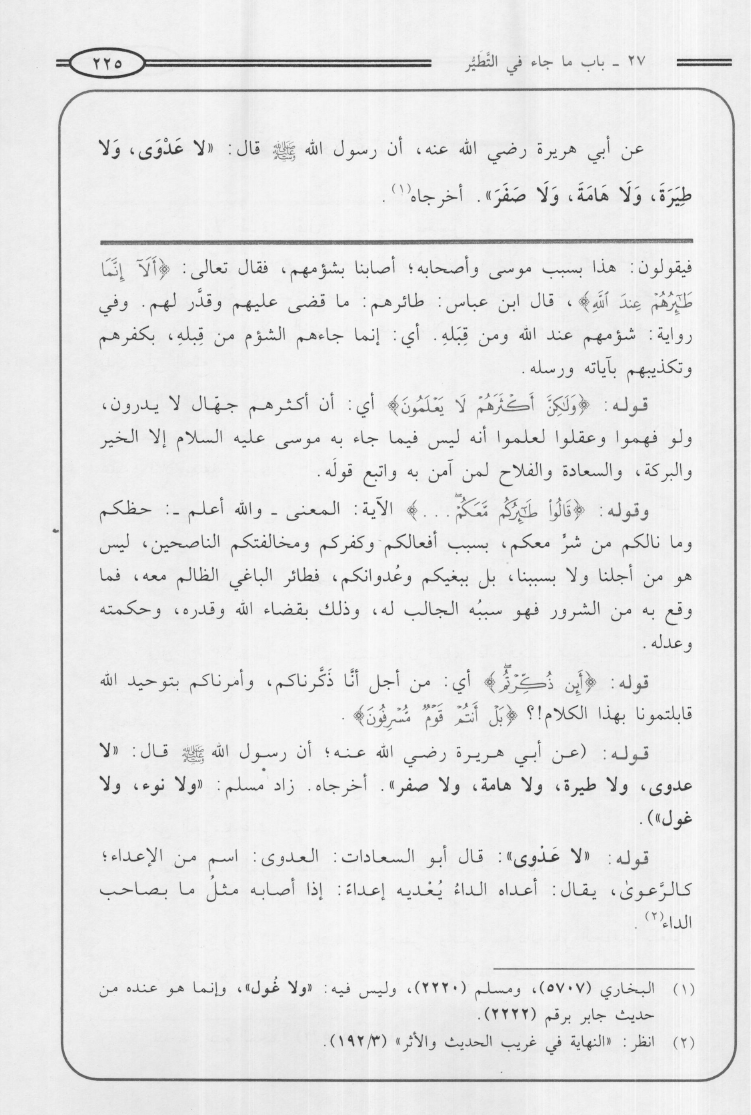 ٢٧ ـ باب ما جاء في التَّطَيُّر
٢٢٥
عن أبي هريرة رضي الله عنه، أن رسول الله ﷺ قال: «لا عَدْوَى، وَلا
طِيَرَةَ، وَلَا هَامَةَ، وَلَا صَفَرَ». أخرجاه(١).
فيقولون: هذا بسبب موسى وأصحابه؛ أصابنا بشؤمهم، فقال تعالى: ﴿أَلَآ إِنَّمَا
طَٰٓئِرُهُمْ عِندَ ٱللَّهِ﴾، قال ابن عباس: طائرهم: ما قضى عليهم وقدَّر لهم. وفي
رواية: شؤمهم عند الله ومن قِبَلهِ. أي: إنما جاءهم الشؤم من قِبلهِ، بكفرهم
وتكذيبهم بآياته ورسله.
قوله: ﴿وَلَٰكِنَّ أَكْثَرَهُمْ لَا يَعْلَمُونَ﴾ أي: أن أكثرهم جهّال لا يدرون،
ولو فهموا وعقلوا لعلموا أنه ليس فيما جاء به موسى عليه السلام إلا الخير
والبركة، والسعادة والفلاح لمن آمن به واتبع قولَه.
وقوله: ﴿قَالُوا۟ طَٰٓئِرُكُم مَّعَكُمْ ...﴾ الآية: المعنى ـ والله أعلم ـ: حظكم
وما نالكم من شرٍّ معكم، بسبب أفعالكم وكفركم ومخالفتكم الناصحين، ليس
هو من أجلنا ولا بسببنا، بل ببغيكم وعُدوانكم، فطائر الباغي الظالم معه، فما
وقع به من الشرور فهو سببُه الجالب له، وذلك بقضاء الله وقدره، وحكمته
وعدله.
قوله: ﴿أَئِن ذُكِّرْتُم﴾ أي: من أجل أنَّا ذَكَّرناكم، وأمرناكم بتوحيد الله
قابلتمونا بهذا الكلام!؟ ﴿بَلْ أَنتُمْ قَوْمٌ مُّسْرِفُونَ﴾.
قوله: (عن أبي هريرة رضي الله عنه؛ أن رسول الله ﷺ قال: «لا
عدوى، ولا طيرة، ولا هامة، ولا صفر». أخرجاه. زاد مسلم: «ولا نوء، ولا
غول»).
قوله: «لا عَدْوى»: قال أبو السعادات: العدوى: اسم من الإعداء؛
كالرَّعوىٰ، يقال: أعداه الداءُ يُعْديه إعداءً: إذا أصابه مثلُ ما بصاحب
الداء(٢).
(١) البخاري (٥٧٠٧)، ومسلم (٢٢٢٠)، وليس فيه: «ولا غُول»، وإنما هو عنده من
حديث جابر برقم (٢٢٢٢).
(٢) انظر: «النهاية في غريب الحديث والأثر» (٣/ ١٩٢).